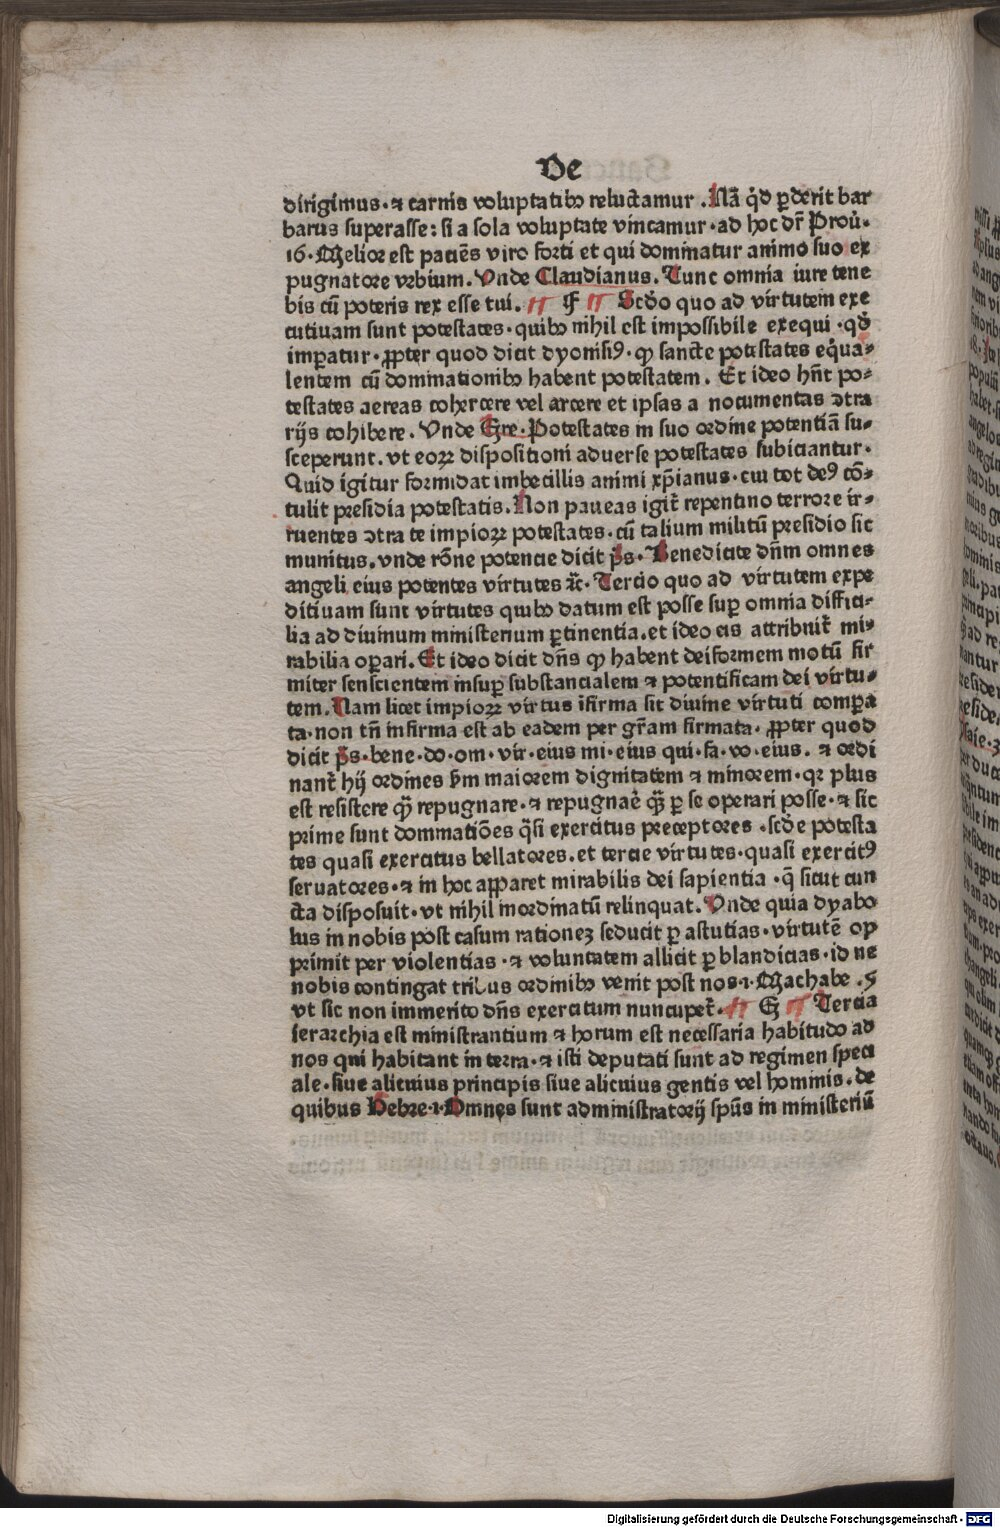 De
dirigimus· ⁊ carnis voluptatibꝰ reluctamur .Nā qͥd ꝑderit bar
barus superasse: si a sola voluptate vincamur·ad hoc dr̄ Prou̇·
16·Melior est paciēs viro forti et qui dominatur animo suo ex
pugnatore vrbium. Vnde Claudianus. Tunc omnia iure tene
bis cū poteris rex esse tui. F Scḋo quo ad virtutem exe
cutiuam sunt potestates·quibꝰ nihil est impossibile exequi ·qḋ
imꝑatur·ꝓpter quod dicit dyonisiꝰ· ꝙ sancte potestates eq̇ua⸗
lentem cū dominationibꝰ habent potestatem. Et ideo hn̄t po⸗
testates aereas cohercere vel arcere et ipsas a nocumentas ↄtra
rijs cohibere. Vnde Gre·Potestates in suo ordine potentiā su⸗
sceperunt. vt eoꝝ dispositioni aduerse potestates subiciantur·
Quid igitur formidat imbecillis animi xp̄ianus·cui tot deꝰ cō⸗
tulit presidia potestatis. Non paueas igit̄ repentino terrore ir⸗
ruentes ↄtra te impioꝝ potestates·cū talium militū presidio sic
munitus. vnde rōne potencie dicit p̄s· Benedicite dn̄m omnes
angeli eius potentes virtutes ⁊c̄· Tercio quo ad virtutem expe
ditiuam sunt virtutes quibꝰ datum est posse suꝑ omnia diffici⸗
lia ad diuinum ministerium ꝑtinentia. et ideo eis attribuit̄ mi⸗
rabilia oꝑari. Et ideo dicit dn̄s ꝙ habent deiformem motū fir
miter senscientem insuꝑ substancialem ⁊ potentificam dei virtu⸗
tem. Nam licet impioꝝ virtus īfirma sit diuine virtuti comꝑa
ta·non tn̄ infirma est ab eadem per gr̄am firmata· ꝓpter quod
dicit p̄s·bene·do·om·vir·eius mi·eius qui·fa·vo·eius. ⁊ ordi
nant̄ hij ordines ẜm maiorem dignitatem ⁊ minorem·qꝛ plus
est resistere qͣ̄ repugnare·⁊ repugnaē qͣ̄ ꝑ se operari posse·⁊ sic
prime sunt dominatiōes qͣsi exercitus preceptores .scḋe potesta
tes quasi exercitus bellatores. et tercie virtutes·quasi exercitꝰ
seruatores·⁊ in hoc apparet mirabilis dei sapientia ·q̄ sicut cun
cta disposuit·vt nihil inordinatū relinquat. Vnde quia dyabo
lus in nobis post casum rationeꝫ seducit ꝑ astutias·virtutē op
primit per violentias ·⁊ voluntatem allicit ꝑ blandicias·id ne
nobis contingat tribus ordinibꝰ venit post nos·1·Machabe .5
vt sic non immerito dn̄s exercituum nuncupet̄· G Tercia
ierarchia est ministrantium ⁊ horum est necessaria habitudo ad
nos qui habitant in terra·⁊ isti deputati sunt ad regimen speci
ale·siue alicuius principis siue alicuius gentis vel hominis·de
quibus Hebre·1·Omnes sunt administratorij spūs in ministeriū
Digitalisierung gefördert durch die Deutsche Forschungsgemeinschaft - DFG